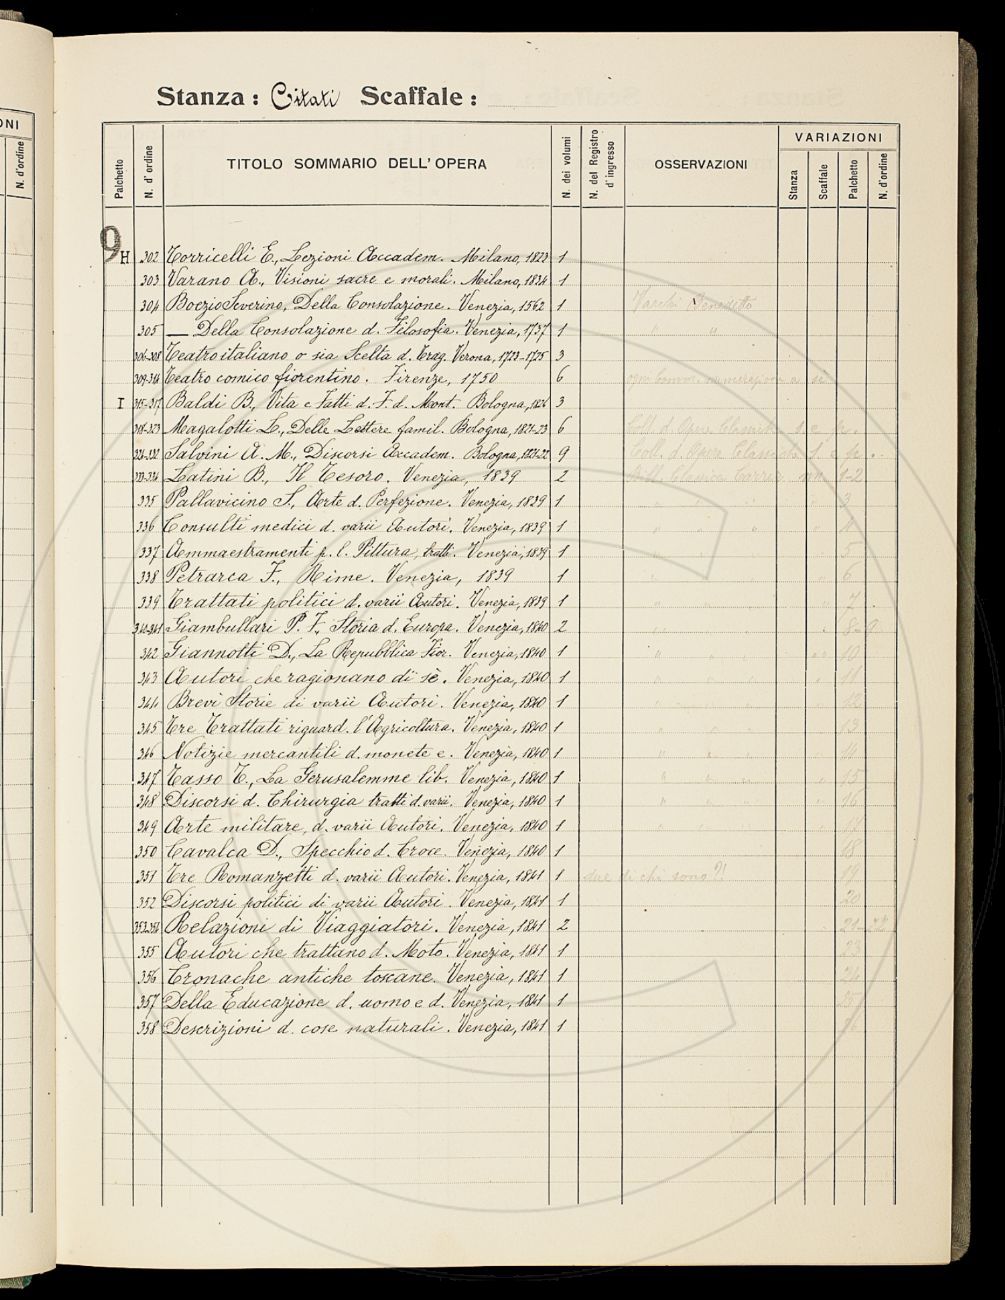 ONI
N. d'ordine
Stanza: Citati Scaffale:
Palchetto
N. d'ordine
TITOLO SOMMARIO DELL'OPERA
N. dei volumi
N. del Registro d'ingresso
OSSERVAZIONI
VARIAZIONI
Stanza
Scaffale
Palchetto
N. d'ordine
9 H 302 Torricelli E., Lezioni Accadem. Milano, 1823 1
303 Varano A., Visioni sacre e morali. Milano, 1834 1
304 Boezio Severino, Della Consolazione. Venezia, 1562 1 Varchi Benedetto
305 — Della Consolazione d. Filosofia. Venezia, 1737 1 "
306-308 Teatro italiano o sia Scelta d. Trag. Verona, 1723-1725 3
309-314 Teatro comico fiorentino. Firenze, 1750 6
I 315-317 Baldi B., Vita e Fatti d. F. d. Mont. Bologna, 1826 3
318-323 Magalotti L., Delle Lettere famil. Bologna, 1821-23 6 Coll. d. Opere Classiche s. e p.
324-332 Salvini A. M., Discorsi Accadem. Bologna, 1821-22 9 Coll. d. Opere Classiche s. e p.
333-334 Latini B., Il Tesoro. Venezia, 1839 2 1-2
335 Pallavicino S., Arte d. Perfezione. Venezia, 1839 1 3
336 Consulti medici d. varii Autori. Venezia, 1839 1 4
337 Ammaestramenti p. l. Pittura, tratt. Venezia, 1839 1 5
338 Petrarca F., Rime. Venezia, 1839 1 6
339 Trattati politici d. varii Autori. Venezia, 1839 1 7
340-341 Giambullari P. F., Storia d. Europa. Venezia, 1840 2 8-9
342 Giannotti D., La Repubblica Fior. Venezia, 1840 1 10
343 Autori che ragionano di sè. Venezia, 1840 1 11
344 Brevi Storie di varii Autori. Venezia, 1840 1 12
345 Tre Trattati riguard. l'Agricoltura. Venezia, 1840 1 13
346 Notizie mercantili d. monete e. Venezia, 1840 1 14
347 Tasso T., La Gerusalemme lib. Venezia, 1840 1 15
348 Discorsi d. Chirurgia tratti d. varii. Venezia, 1840 1 16
349 Arte militare, d. varii Autori. Venezia, 1840 1
350 Cavalca D., Specchio d. Croce. Venezia, 1840 1 18
351 Tre Romanzetti d. varii Autori. Venezia, 1841 1 due di chi sono?! 19
352 Discorsi politici di varii Autori. Venezia, 1841 1 20
353-354 Relazioni di Viaggiatori. Venezia, 1841 2 21-22
355 Autori che trattano d. Moto. Venezia, 1841 1 23
356 Cronache antiche toscane. Venezia, 1841 1 24
357 Della Educazione d. uomo e d. Venezia, 1841 1 25
358 Descrizioni d. cose naturali. Venezia, 1841 1